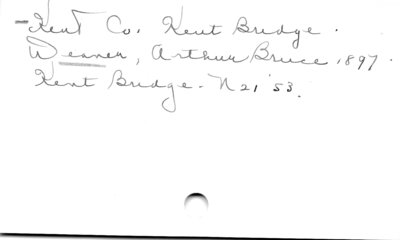 Kent Co. Kent Bridge.
Weaver, Arthur Bruce, 1897.
Kent Bridge - N 21 '53.